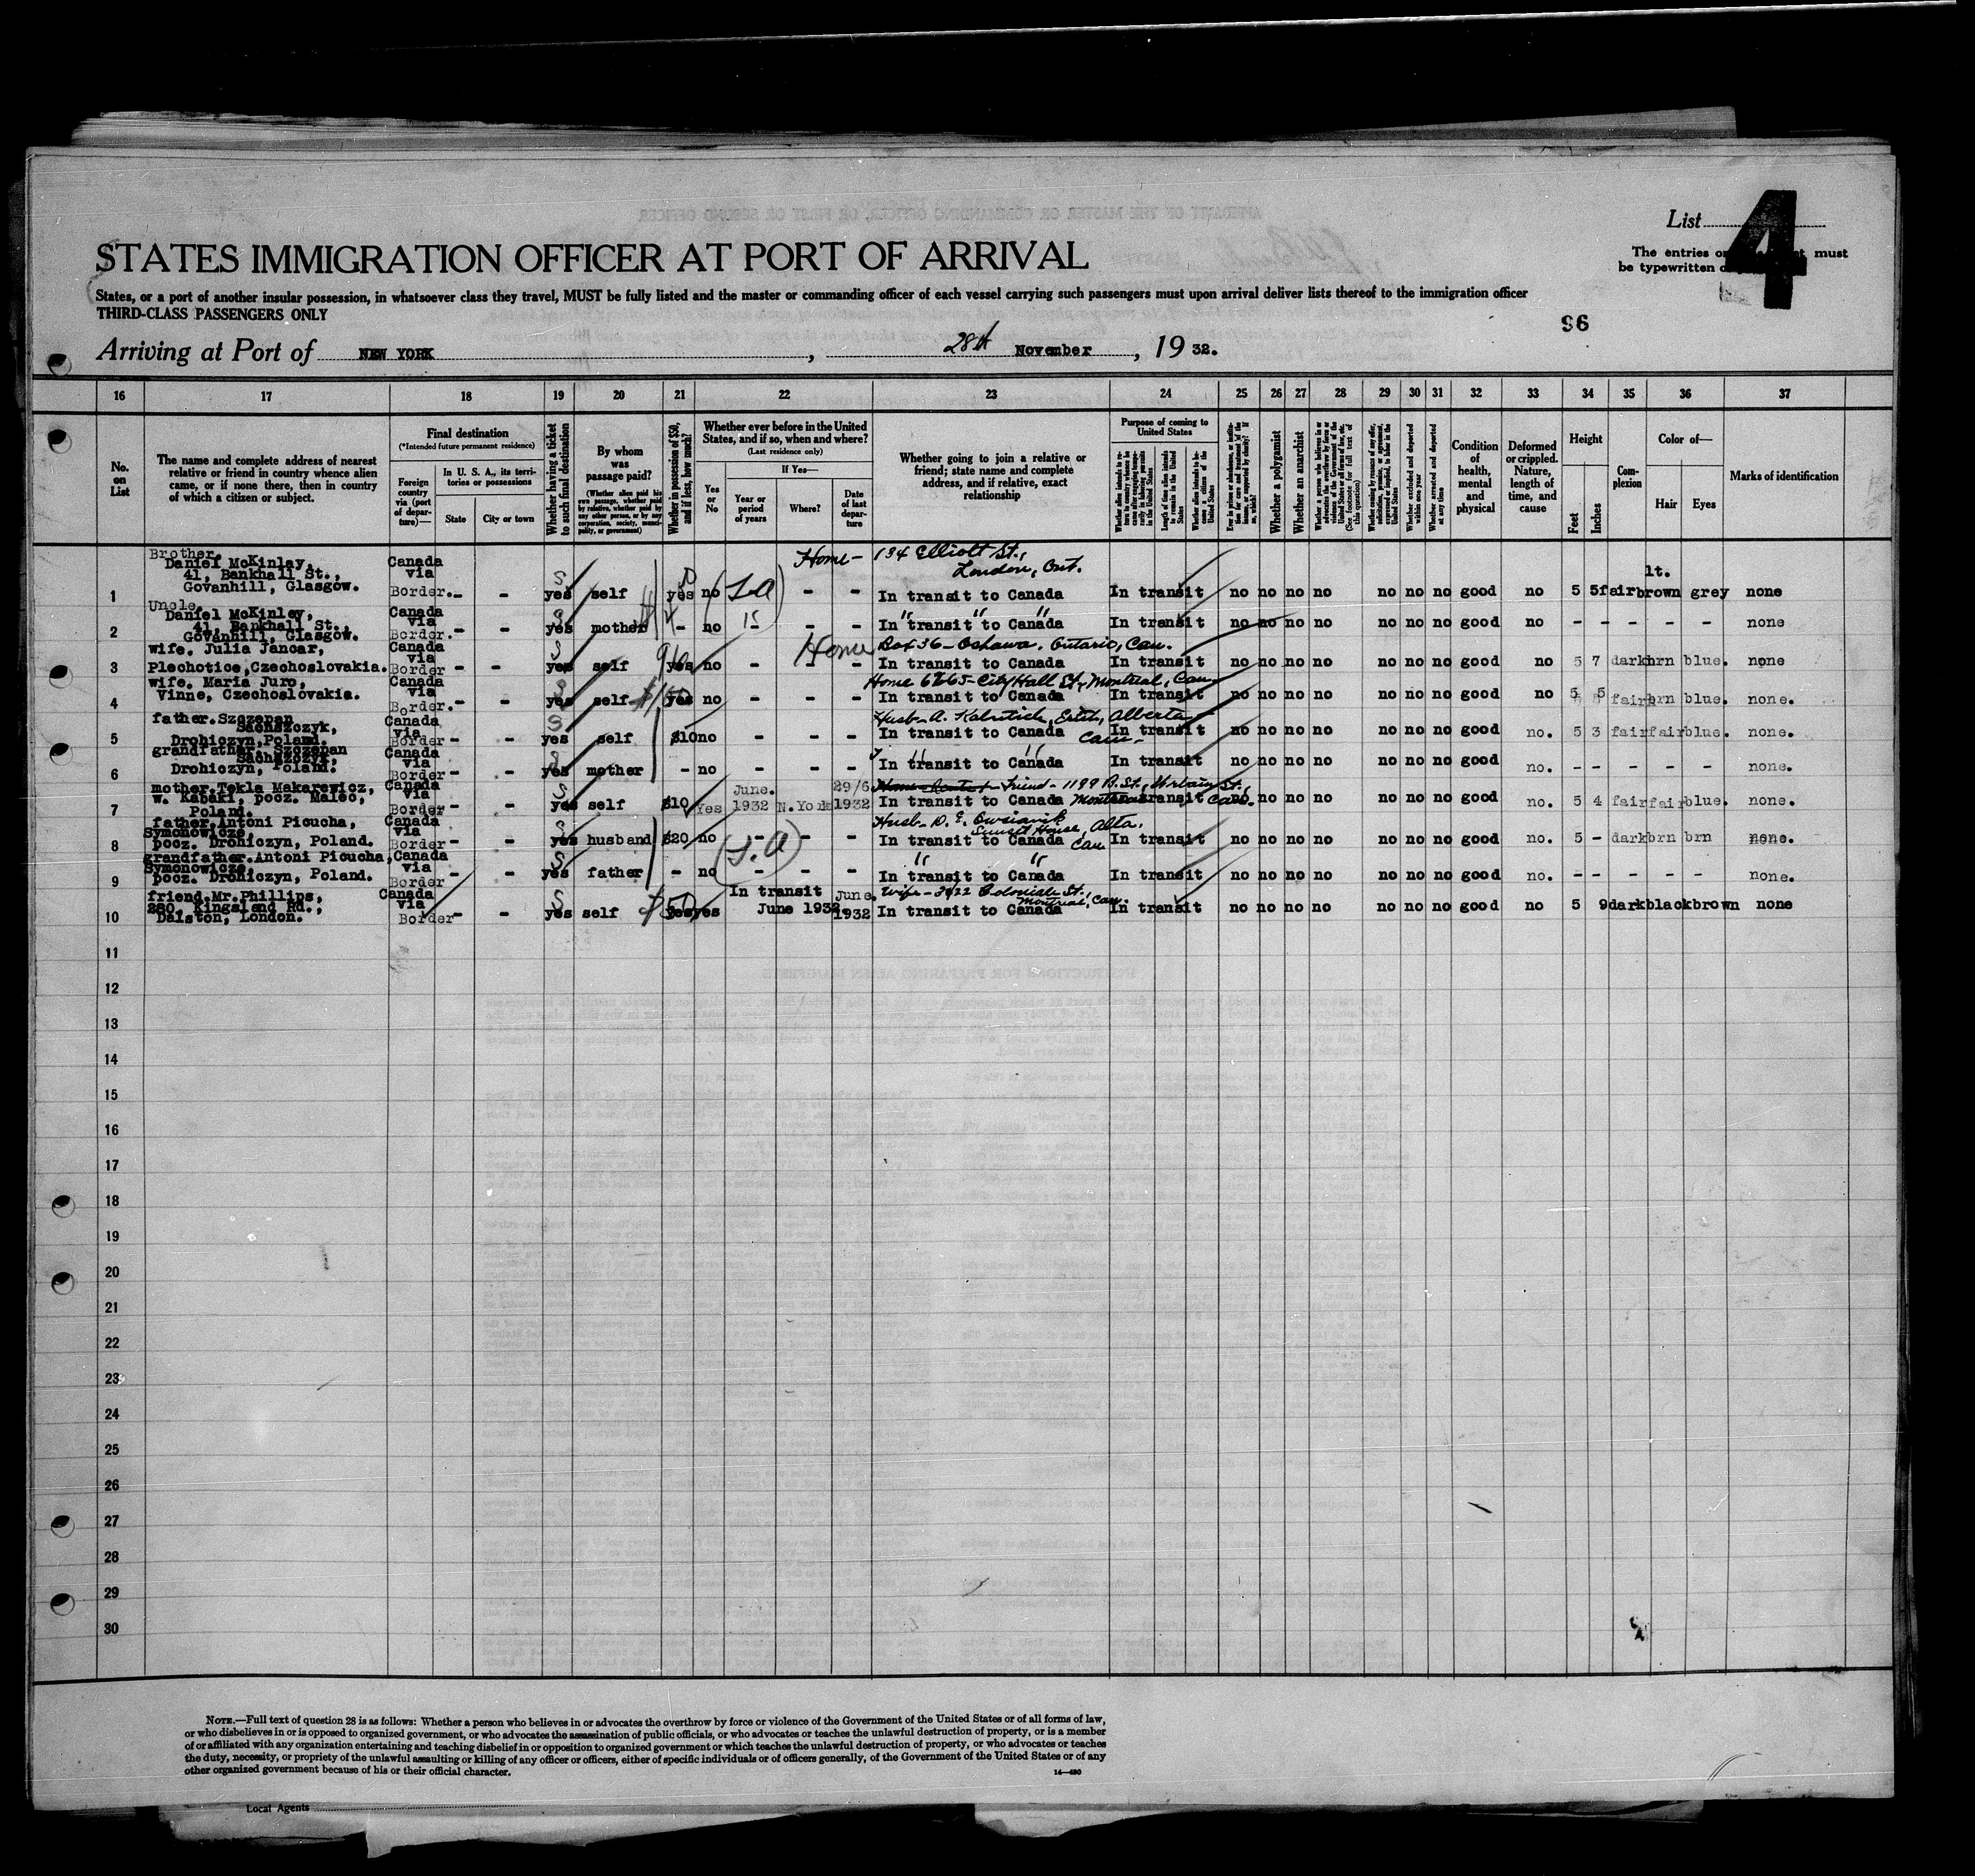 List 4
STATES IMMIGRATION OFFICER AT PORT OF ARRIVAL
The entries on must
be typewritten
States, or a port of another insular possession, in whatsoever class they travel, MUST be fully listed and the master or commanding officer of each vessel carrying such passengers must upon arrival deliver lists thereof to the immigration officer
THIRD-CLASS PASSENGERS ONLY
96
Arriving at Port of NEW YORK, 28th November, 19 32.
16 17 18 19 20 21 22 23 24 25 26 27 28 29 30 31 32 33 34 35 36 37
No. on List
The name and complete address of nearest relative or friend in country whence alien came, or if none there, then in country of which a citizen or subject.
Final destination
(*Intended future permanent residence)
Foreign country via (port of departure)—
In U. S. A., its territories or possessions
State
City or town
Whether having a ticket to such final destination
By whom was passage paid?
(Whether alien paid his own passage, whether paid by relative, whether paid by any other person, or by any corporation, society, municipality, or government)
Whether in possession of $50, and if less, how much?
Whether ever before in the United States, and if so, when and where?
(Last residence only)
Yes or No
If Yes—
Year or period of years
Where?
Date of last departure
Whether going to join a relative or friend; state name and complete address, and if relative, exact relationship
Purpose of coming to United States
Length of time alien intends to remain in the United States
Whether alien intends to become a citizen of the United States
Whether a polygamist
Whether an anarchist
Whether excluded and deported within one year
Whether arrested and deported at any time
Condition of health, mental and physical
Deformed or crippled. Nature, length of time, and cause
Height
Feet
Inches
Complexion
Color of—
Hair
Eyes
Marks of identification
Brother. Home— 134 Elliott St.,
Daniel McKinlay, Canada London, Ont.
41, Bankhall St., via S lt.
1 Govanhill, Glasgow. Border. - - yes self yes no - - In transit to Canada In transit no no no no no no no good no 5 5 fair brown grey none
Uncle.
Daniel McKinley, Canada
41, Bankhall St., via
2 Govanhill, Glasgow. Border. - - yes mother - no - - - In transit to Canada In transit no no no no no no no good no - - - - - none
wife. Julia Jancar, Canada Home Box 36 - Oshawa, Ontario, Can.
via
3 Plechotice, Czechoslovakia. Border - - yes self yes no - - - In transit to Canada In transit no no no no no no no good no 5 7 dark brn blue. none
wife. Maria Juro, Canada Home City Hall St, Montreal, Can.
4 Vinne, Czechoslovakia. via Border. - - yes self yes no - - - In transit to Canada In transit no no no no no no no good no 5 5 fair brn blue. none.
father. Szczepan Canada Husb - A. Alberta
Sachszczyk, via
5 Drohiczyn, Poland. Border - - yes self $10 no - - - In transit to Canada Can. In transit no no no no no no no good no. 5 3 fair fair blue. none.
grandfather. Szczepan Canada
Sachszczyk, via
6 Drohiczyn, Poland. Border - - yes mother - no - - - In transit to Canada In transit no no no no no no no good no. - - - - - none.
mother. Tekla Makarewicz, Canada June. 29/6 Friend - 1199 St.
w. Kabaki, pocz. Malec, via
7 Poland. Border - - yes self $10 Yes 1932 N.York 1932 In transit to Canada In transit no no no no no no no good no. 5 4 fair fair blue. none.
father. Antoni Picucha, Canada Husb - D. E. Owsianik
Symonowicze, via Sunset House, Alta.
8 pocz. Drohiczyn, Poland. Border - - yes husband $20 no - - - In transit to Canada Can In transit no no no no no no no good no. 5 - dark brn brn none.
grandfather. Antoni Picucha, Canada
Symonowicze, via
9 pocz. Drohiczyn, Poland. Border - - yes father - no - - - In transit to Canada In transit no no no no no no no good no. - - - - - none.
friend. Mr. Phillips, Canada In transit June. Wife - 3422 Coloniale St.,
280, Kingsland Rd., via Montreal, Can.
10 Dalston, London. Border - - yes self $50 yes yes June 1932 1932 In transit to Canada In transit no no no no no no no good no 5 9 dark black brown none
11
12
13
14
15
16
17
18
19
20
21
22
23
24
25
26
27
28
29
30
NOTE.—Full text of question 28 is as follows: Whether a person who believes in or advocates the overthrow by force or violence of the Government of the United States or of all forms of law,
or who disbelieves in or is opposed to organized government, or who advocates the assassination of public officials, or who advocates or teaches the unlawful destruction of property, or is a member
of or affiliated with any organization entertaining and teaching disbelief in or opposition to organized government or which teaches the unlawful destruction of property, or who advocates or teaches
the duty, necessity, or propriety of the unlawful assaulting or killing of any officer or officers, either of specific individuals or of officers generally, of the Government of the United States or of any
other organized government because of his or their official character.
14—480
Local Agents